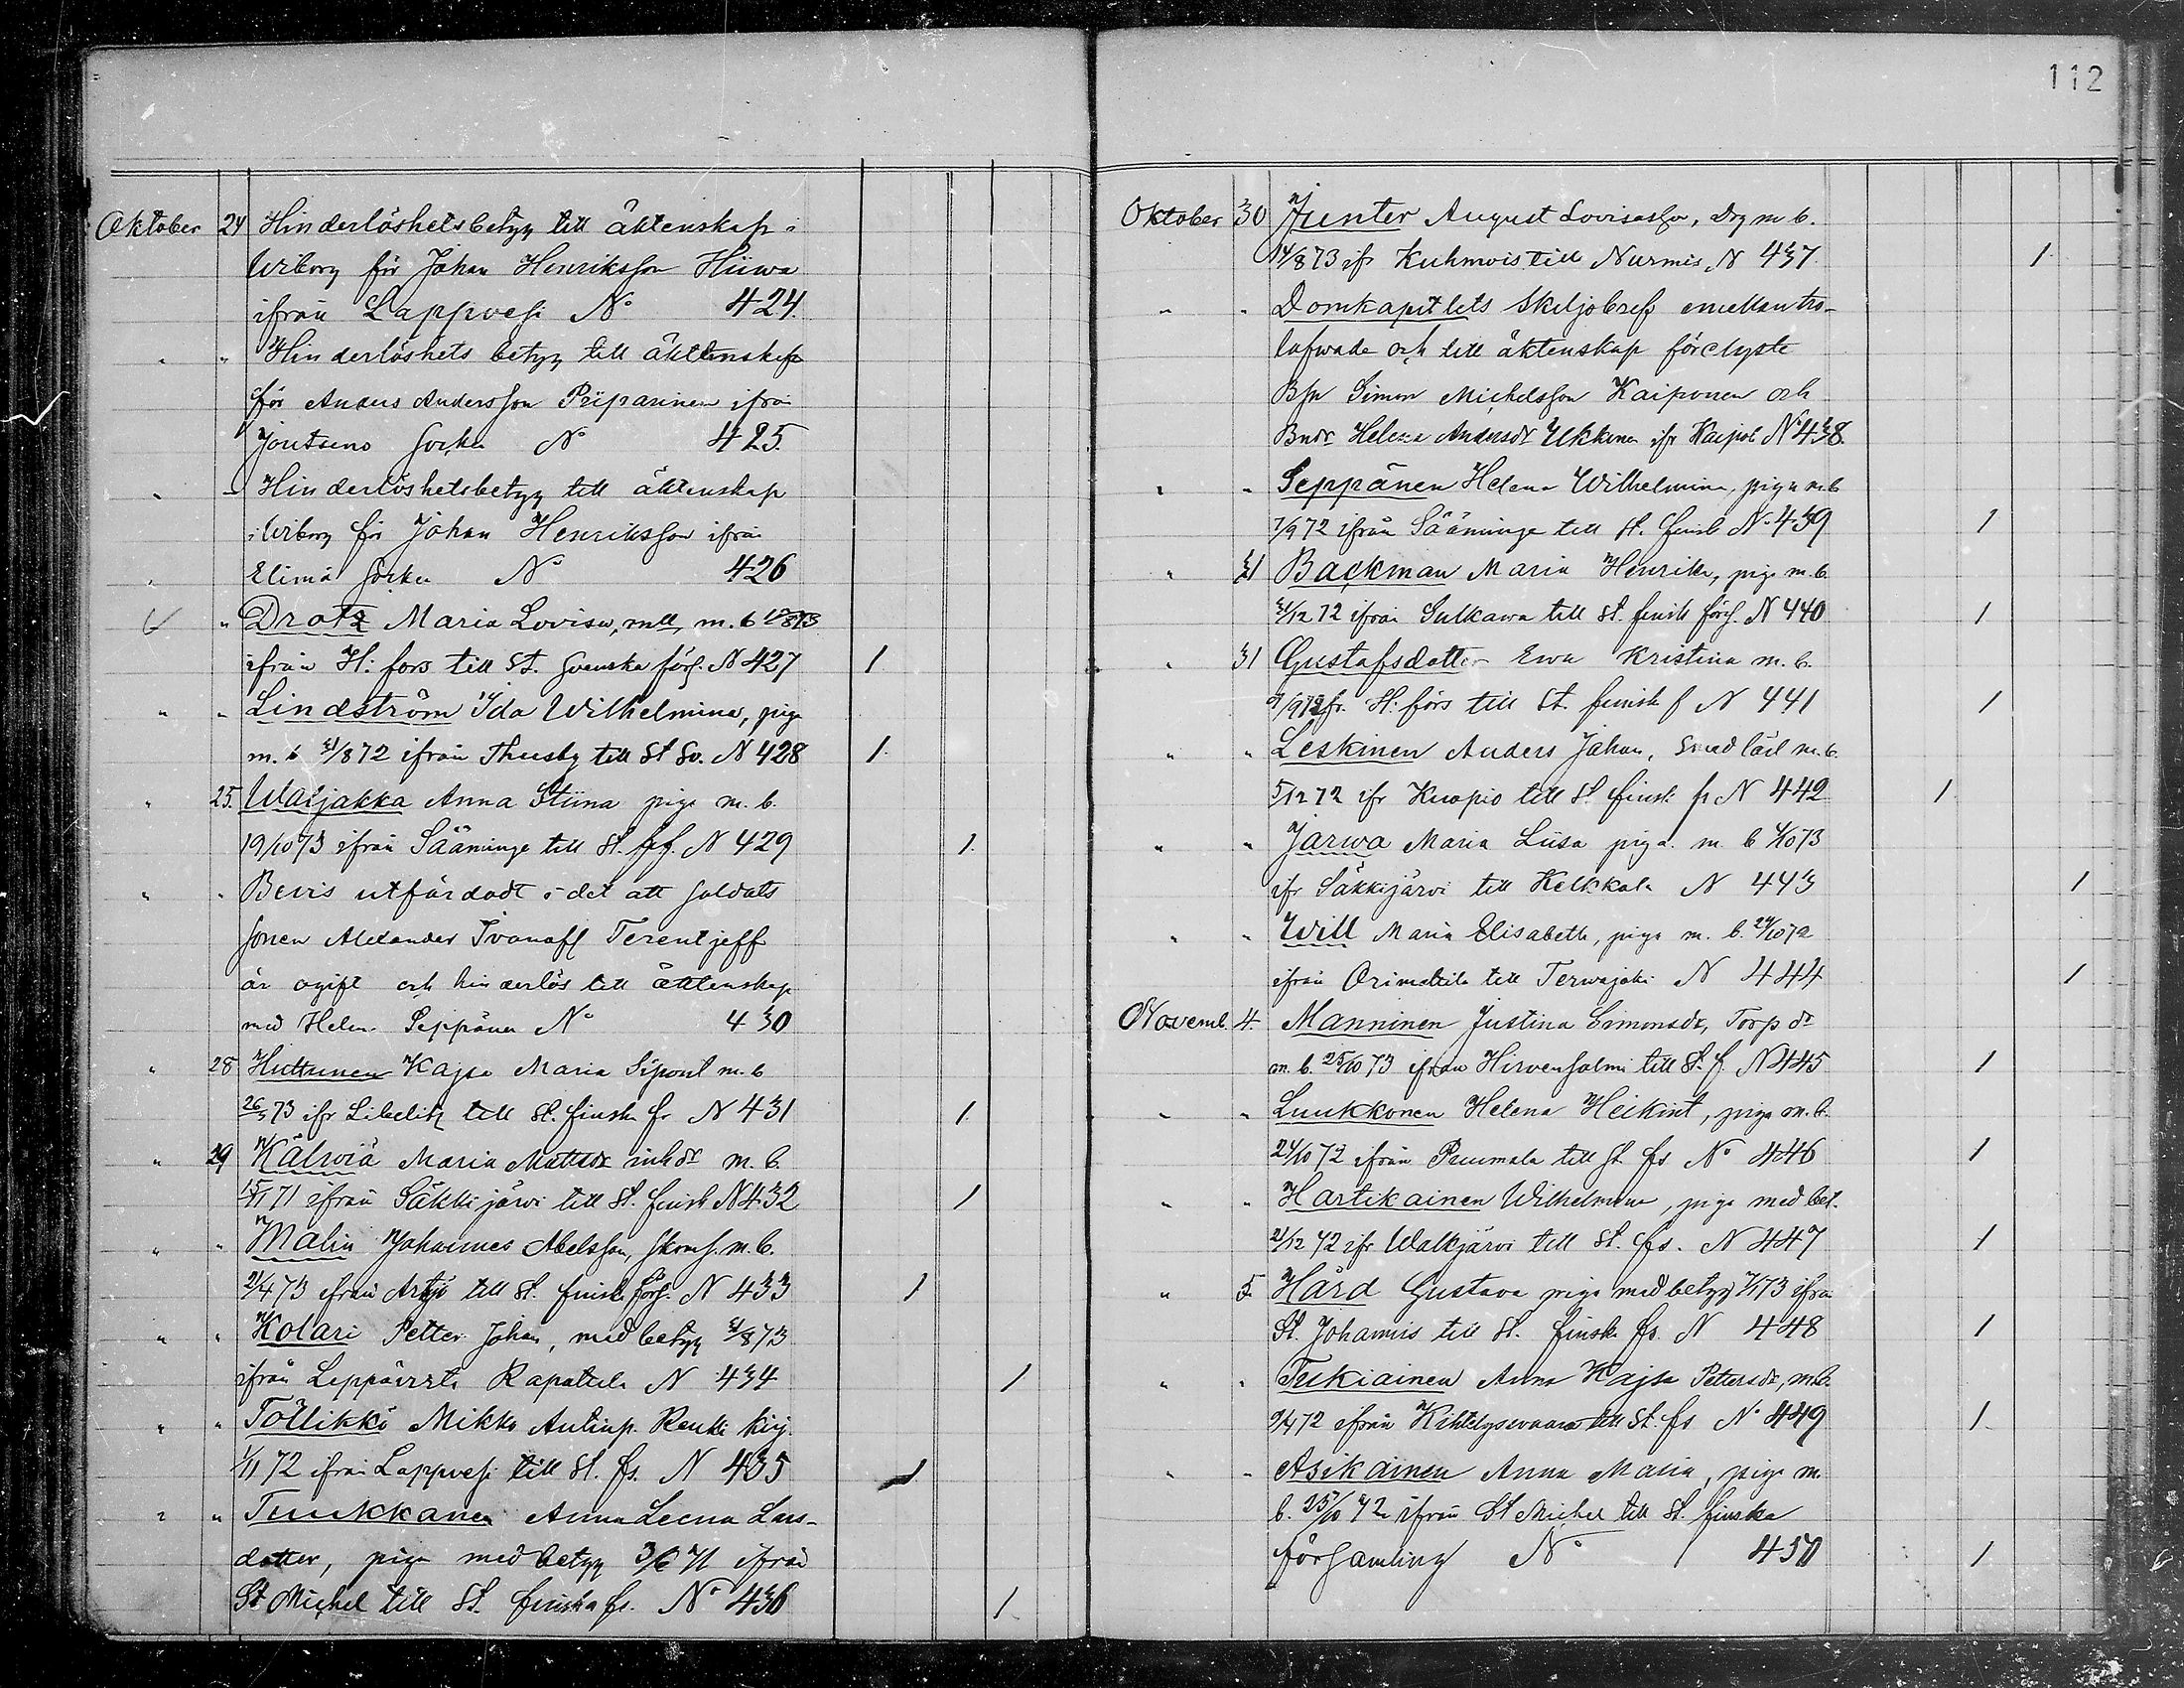 112
Oktober 24 Hinderlöshetsbetyg till äktenskap i
Wiborg för Johan Henriksson Hiiwa
ifrån Lappvesi No 424.
" " Hinderlöshets betyg till äktenskap
för Anders Andersson Piiparinen ifrån
Joutseno Socken No 425.
" " Hinderlöshetsbetyg till äktenskap
i Wiborg för Johan Henriksson ifrån
" Elimä Socken No 426
" Dratz Maria Lovisa, mll, m. b
ifrån H:fors till St. Svenska förs. N 427 1.
" " Lindström Ida Wilhelmina, piga
m. b 31/8 72 ifrån Thusby till St Sv. N 428 1.
" 25. Waljakka Anna Stiina piga m. b.
19/10 73 ifrån Sääminge till St. ff. N 429 1.
" " Bevis utfärdadt å det att soldats
sonen Alexander Ivanoff Terentjeff
är ogift och hinderlös till äktenskap
med Helen. Seppänen No 430
" 28 Huttunen Kajsa Maria m. b
26/3 73 ifr Libelitz till St. finska fr N 431 1.
" 29 Kälviä Maria Mattsdr inhdr m. b.
71 ifrån Säkkijärvi till St. finsk N 432 1
" " Malin Johannes Abelsson, m. b.
21/4 73 ifrån Artsjö till St. finsk förs. N 433 1
" " Kolari Petter Johan, med betyg 31/8 73
ifrån Leppävirta Rapattila N 434 1
" " Töllikkö Mikko Antinp. Renki kirj.
1/11 72 ifrån Lappvesi till St. fs. N 435 1
" " Tuukkanen Anna Leena Lars-
dotter, piga med betyg 3/6 71 ifrån
St Michel till St. finska fs. No 436 1.
Oktober 30 Junter August Lovisasson, Drg m b.
14/8 73 ifr Kuhmois till Nurmis N 437 1.
" " Domkapitlets Skiljobref emellan tro-
lofwade och till äktenskap förelyste
Bsn Simon Michelsson Kaiponen och
Bndr Helena Andersdr Ukkonen ifr No 438.
" " Seppänen Helena Wilhelmina, piga m b
7/9 72 ifrån Sääminge till St. finsk No 439 1
" 31 Backman Maria Henrika, piga m. b.
31/12 72 ifrån Sulkawa till St. finsk förs. N 440 1
" 31 Gustafsdotter Ewa Kristina m. b.
fr. H:fors till St. finsk f N 441 1
" " Leskinen Anders Johan, Smed lärl m. b.
5/12 72 ifr Kuopio till St finsk fr N 442 1.
" " Jarwa Maria Liisa piga m. b 4/10 73
ifr Säkkijärvi till Kelkkala N 443 1
" " Will Maria Elisabeth, piga m. b. 24/10 72
ifrån Orimattila till Terwajoki N 444 1
Novemb. 4 Manninen Justina Simonsdr, Torp dr
m. b. 25/10 73 ifrån Hirvensalmi till St. f. N 445 1
" " Luukkonen Helena Heikint, piga m. b.
24/10 72 ifrån Puumala till St. fs No 446 1
" " Hartikainen Wilhelmina, piga med bet.
21/12 72 ifr Walkjärvi till St. fs. N 447 1
" 5 Hård Gustava piga med betyg 73 ifrån
St. Johannis till St. finska fs. N 448 1
" " Tukiainen Anna Kajsa Pettersdr, m.b.
72 ifrån Kihtelysvaara till St. fs No 449 1.
" " Asikainen Anna Maria, piga m.
b. 25/10 72 ifrån St Michel till St. finska
församling No 450 1